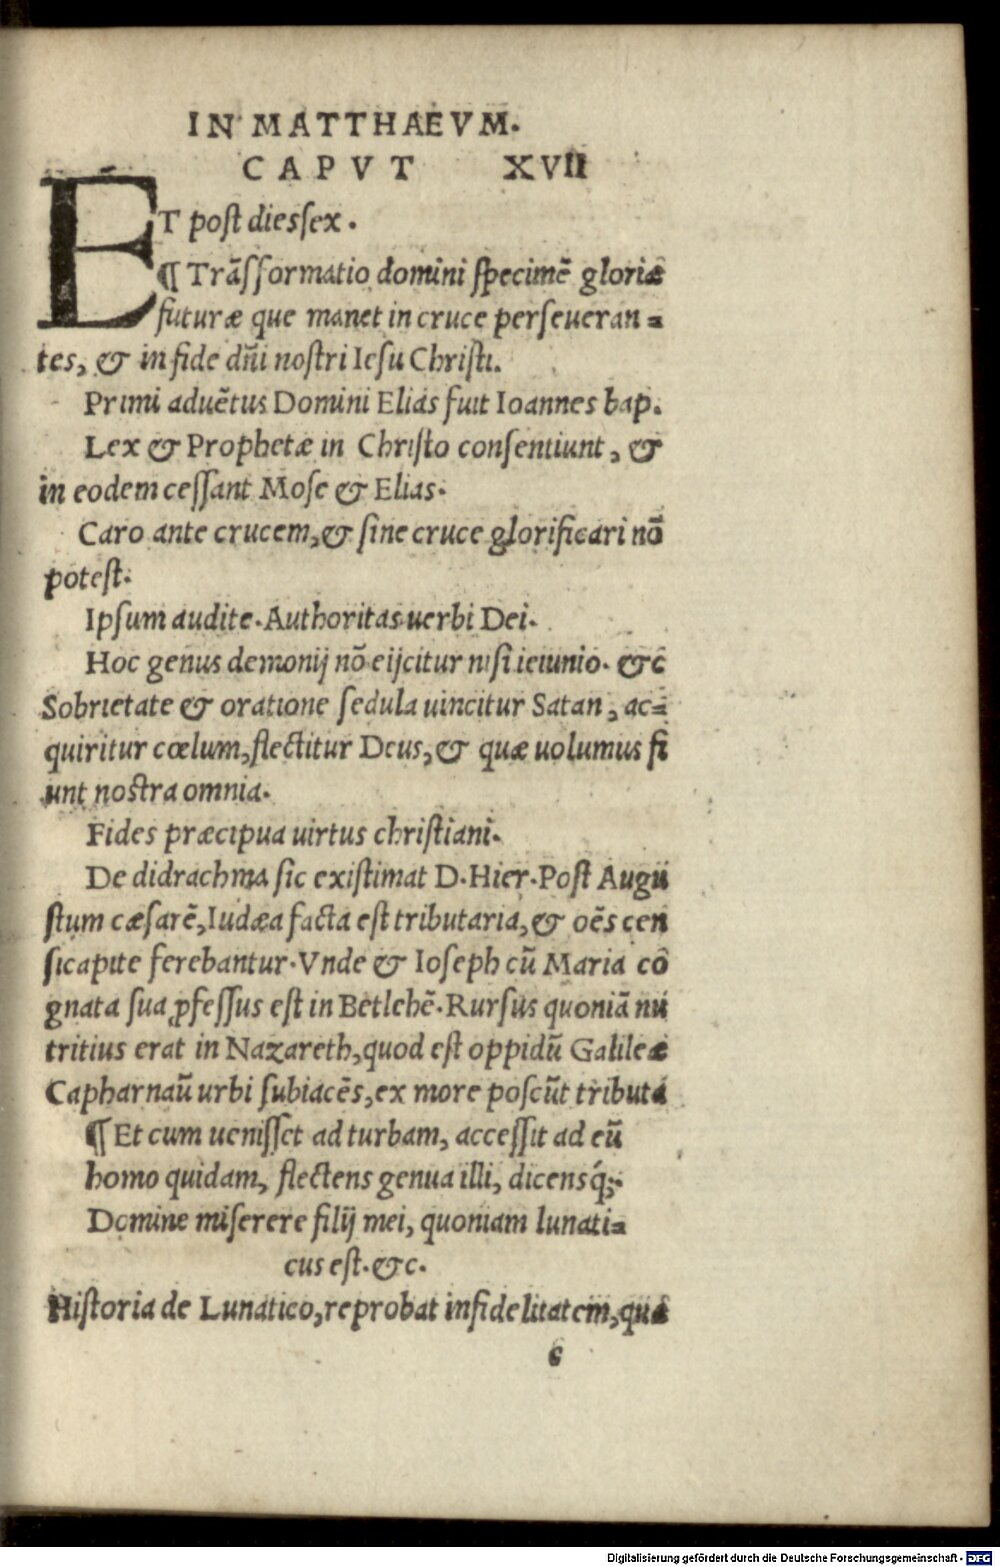 IN MATTHAEVM.
CAPVT XVII
ET post dies sex.
¶ Trãsformatio domini specimẽ gloriæ
futuræ que manet in cruce perseueran=
tes, & in fide dñi nostri Iesu Christi.
Primi aduẽtus Domini Elias fuit Ioannes bap.
Lex & Prophetæ in Christo consentiunt, &
in eodem cessant Mose & Elias.
Caro ante crucem, & sine cruce glorificari nõ
potest.
Ipsum audite. Authoritas uerbi Dei.
Hoc genus demonij nõ eijcitur nisi ieiunio. &c
Sobrietate & oratione sedula uincitur Satan, ac=
quiritur cœlum, flectitur Deus, & quæ uolumus fi
unt nostra omnia.
Fides præcipua uirtus christiani.
De didrachma sic existimat D. Hier. Post Augu
stum cæsarẽ, Iudæa facta est tributaria, & oẽs cen
si capite ferebantur. Vnde & Ioseph cũ Maria cõ
gnata sua ꝓfessus est in Betlehẽ. Rursus quoniã nu
tritius erat in Nazareth, quod est oppidũ Galileæ
Capharnaũ urbi subiacẽs, ex more poscũt tributa
¶ Et cum uenisset ad turbam, accessit ad eũ
homo quidam, flectens genua illi, dicensq́;
Domine miserere filij mei, quoniam lunati=
cus est. &c.
Historia de Lunatico, reprobat infidelitatem, quæ
c
Digitalisierung gefördert durch die Deutsche Forschungsgemeinschaft - DFG